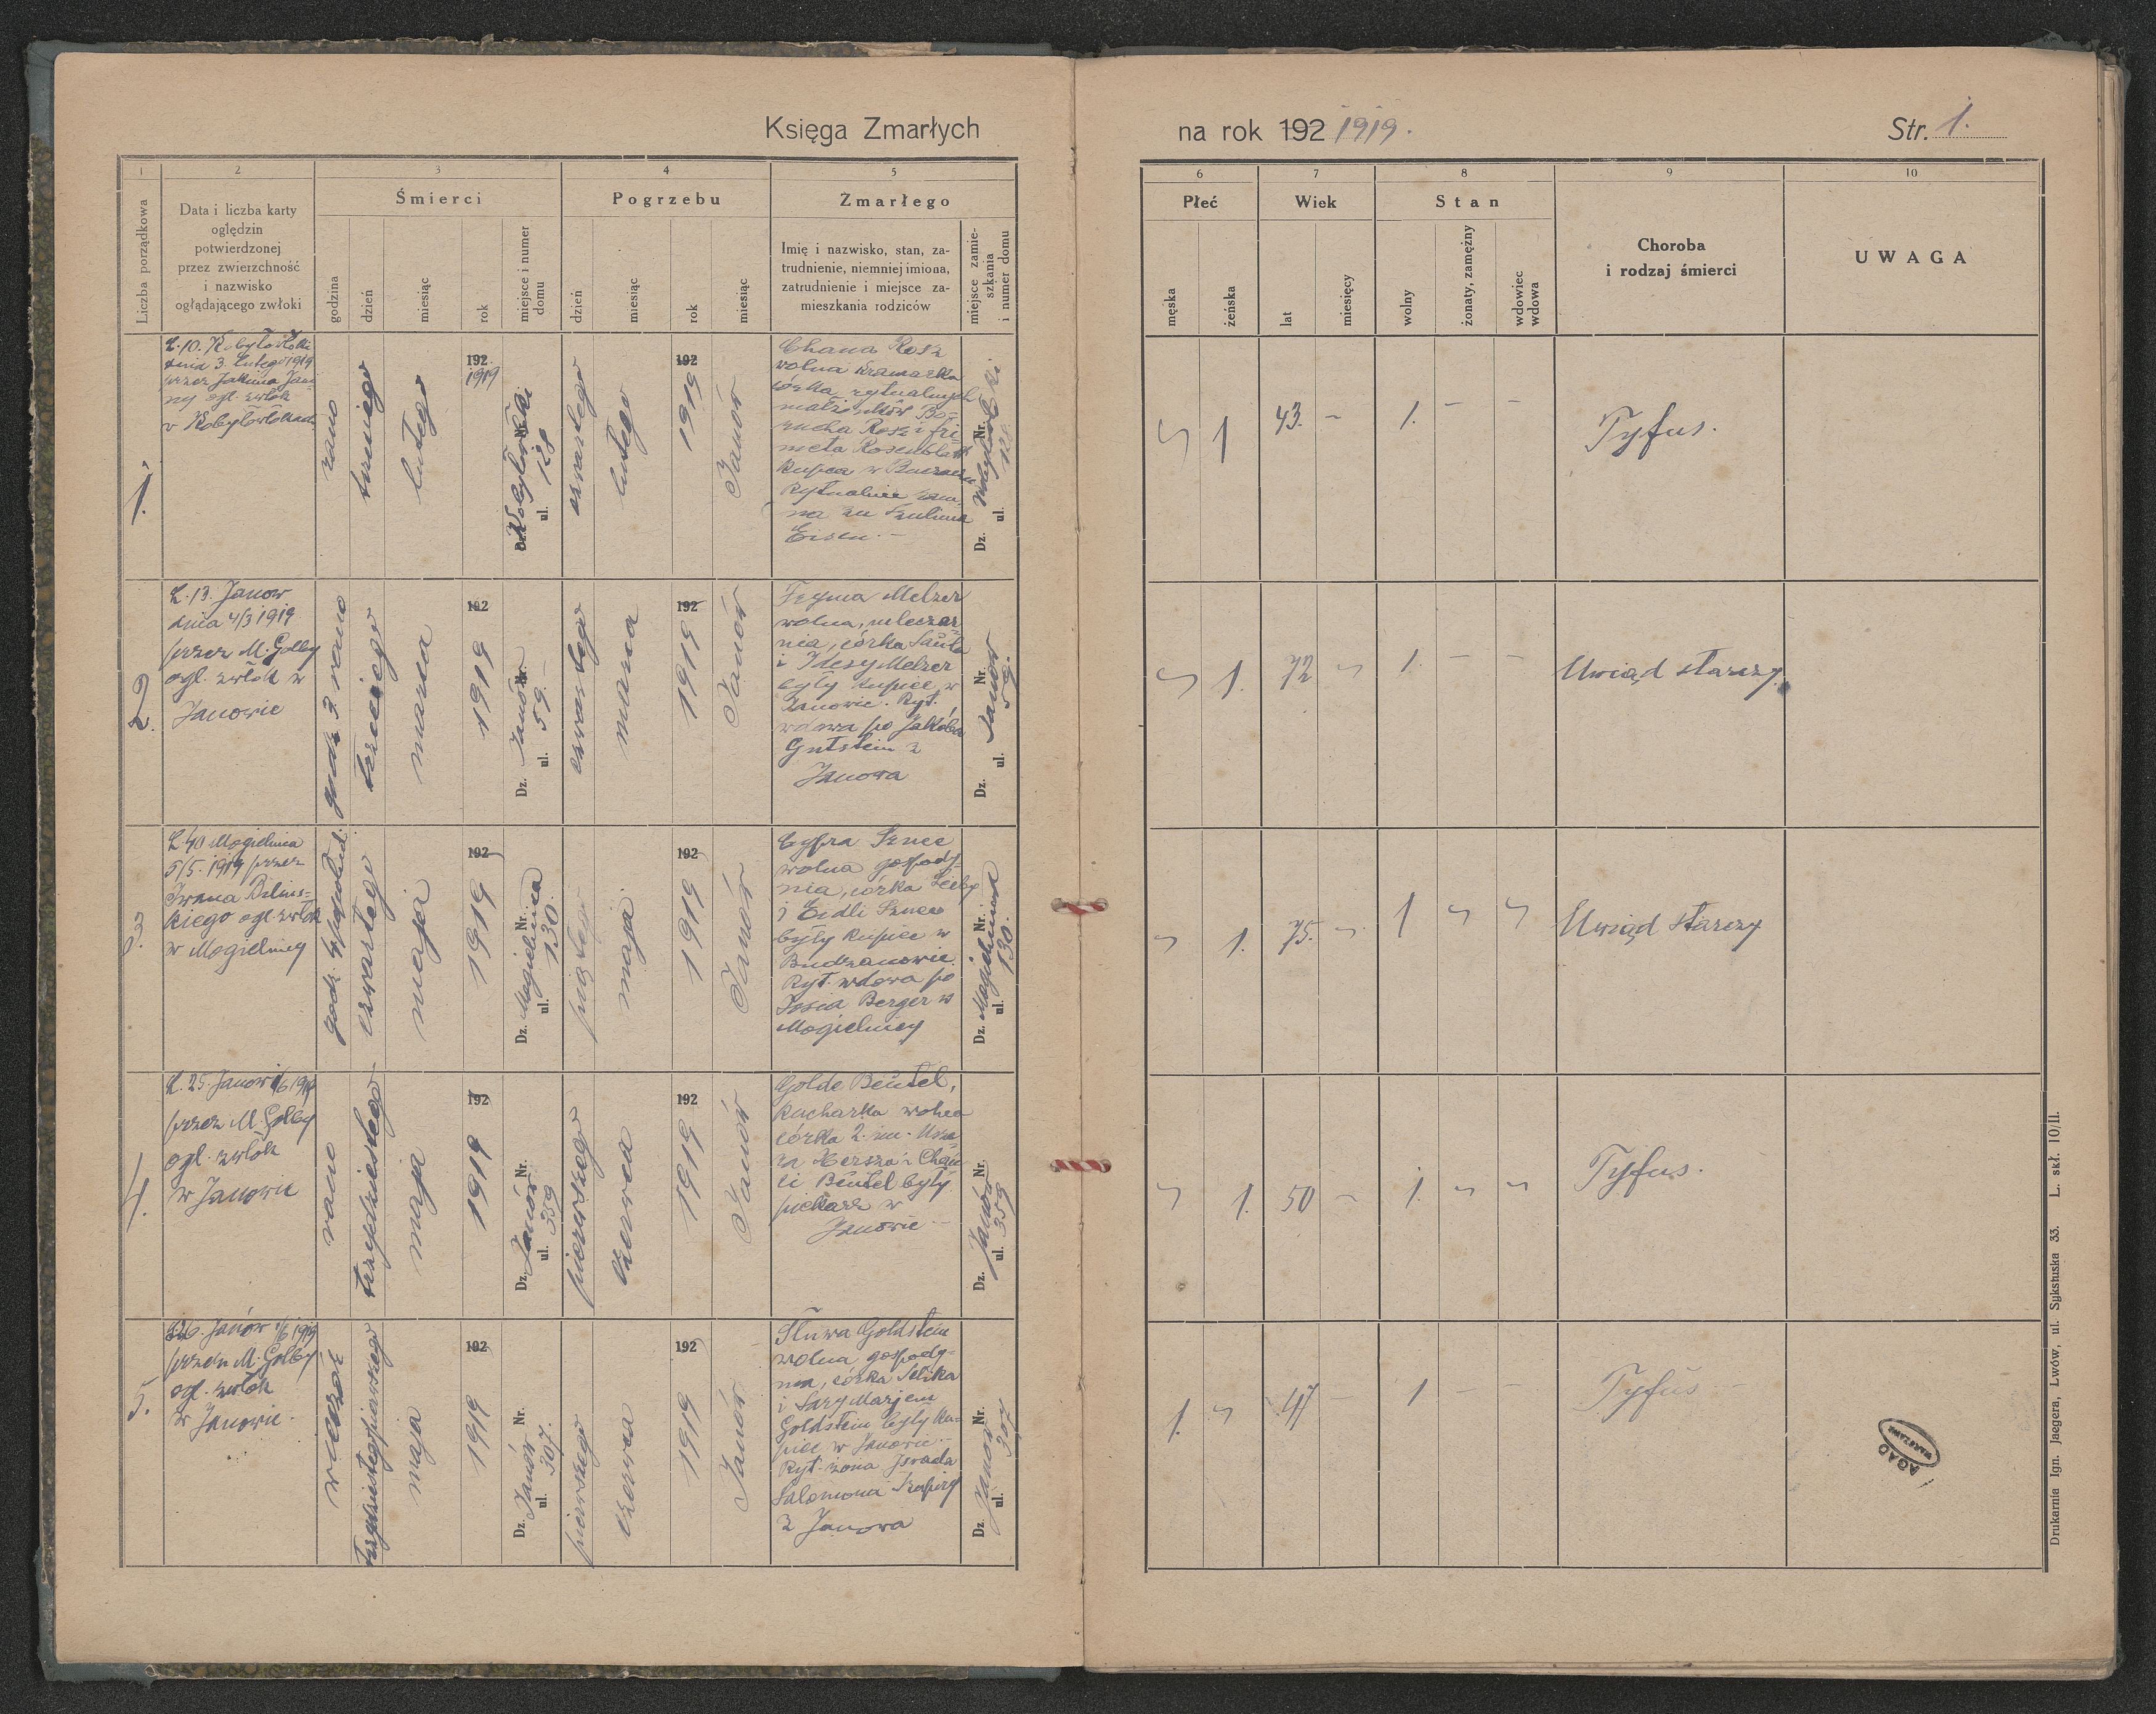 Księga Zmarłych
na rok 192 1919.
Str. 1.
1
2
3
4
5
6
7
8
9
10
Liczba porządkowa
Data i liczba karty
oględzin
potwierdzonej
przez zwierzchność
i nazwisko
oglądającego zwłoki
Śmierci
godzina
dzień
miesiąc
rok
miejsce i numer
domu
Pogrzebu
dzień
miesiąc
rok
miesiąc
Zmarłego
Imię i nazwisko, stan, za-
trudnienie, niemniej imiona,
zatrudnienie i miejsce za-
mieszkania rodziców
miejsce zamie-
szkania
i numer domu
Płeć
męska
żeńska
Wiek
lat
miesięcy
Stan
wolny
żonaty, zamężny
wdowiec
wdowa
Choroba
i rodzaj śmierci
UWAGA
1.
L. 10. Kobyłowłoki
dnia 3. lutego 1919
przez
ogl. zwłok
w Kobyłowłokach
rano
trzeciego
lutego
192
1919
Dz. Kobyłowłoki Nr.
ul. 128
czwartego
lutego
192
1919
Janów
Chana Rosz
wolna kramarka
córka rytualnych
małżonków Bo-
rucha Rosz i Fri-
meta Rosenblatt
kupca w
Rytualnie
na za
Eisen. -
Dz. Nr.
ul. 128.
1
43. -
1. - -
Tyfus.
2.
L. 13. Janow
dnia 4/3 1919
przez M. Golby
ogl. zwłok w
Janowie
godz. 3 rano
trzeciego
marca
192
1919
Dz. Janów Nr.
ul. 59. -
czwartego
marca
192
1919
Janów
Melzer
wolna, mleczar-
nia, córka Saula
i Idesy Melzer
były kupiec w
Janowie. Ryt.
wdowa po Jakóbie
Gutstein z
Janowa
Dz. Janow Nr.
ul. 59.
1.
72
1. - -
Uwiąd starczy.
3.
L 40 Mogielnica
5/5. 1919 przez
Iwana Bilins-
kiego ogl. zwłok
w Mogielnicy
godz. 4
czwartego
maja
192
1919
Dz. Mogielnica Nr.
ul. 130.
piątego
maja
192
1919
Janów
Cypra Sznee
wolna gospody-
nia, córka Leiby
i Eidli Sznee
były kupiec w
Budzanowie.
Ryt. wdowa po
Berger w
Mogielnicy
Dz. Mogielnica Nr.
ul. 130.
1.
75.
1
Uwiąd starczy
4.
L. 25. Janow 1/6 1919
przez M. Golby
ogl. zwłok
w Janowie
rano
trzydziestego
maja
192
1919
Dz. Janów Nr.
ul. 359
pierwszego
czerwca
192
1919
Janów
Golde Beutel,
kucharka wolna
córka 2. im.
Hersza i
Beutel były
piekarz w
Janowie -
Dz. Janów Nr.
ul. 359
1.
50 -
1.
Tyfus.
5.
L 26. Janów 1/6 1919
przez M. Golby
ogl. zwłok
w Janowie.
wieczór
trzydziestegopierwszego
maja
192
1919
Dz. Janów Nr.
ul. 307.
pierwszego
czerwca
192
1919
Janów
Sluwa Goldstein
wolna gospody-
nia, córka Selika
i Sary Marjem
Goldstein były ku-
piec w Janowie. -
Ryt. żona Israela
Salomona Szapiry
z Janowa
Dz. Janow Nr.
ul. 307
1.
47 -
1 - -
Tyfus
AGAD
WARSZAWA
Drukarnia Ign. Jaegera, Lwów, ul. Sykstuska 33. L. skł. 10/II.